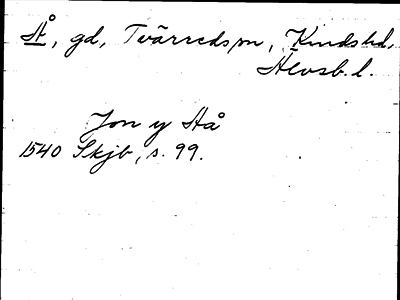 Å, gd, Tvärredspn, Kindshd,
Älvsb. l.
Jon y Aå
1540 Skjb, s. 99.